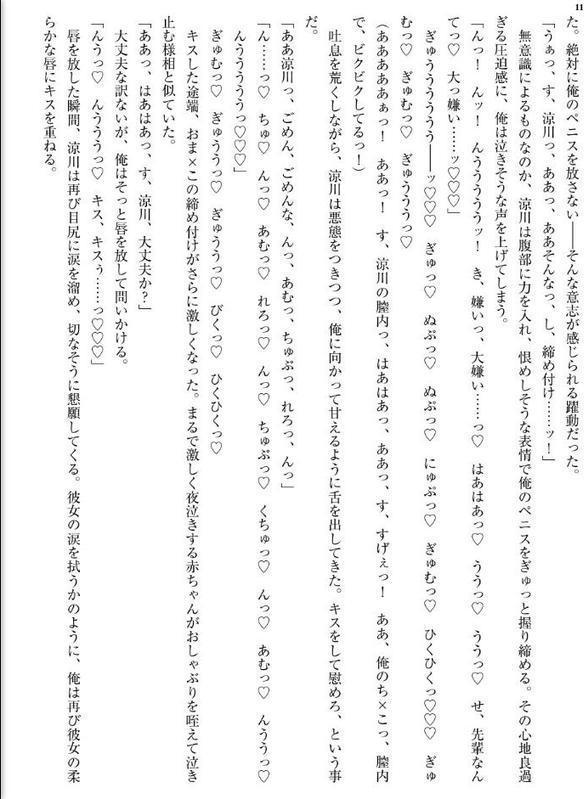 11
た。絶対に俺のペニスを放さない――そんな意志が感じられる躍動だった。
「うぁっ、す、涼川っ、ああっ、ああそんなっ、し、締め付け……ッ！」
無意識によるものなのか、涼川は腹部に力を入れ、恨めしそうな表情で俺のペニスをぎゅっと握り締める。その心地良過
ぎる圧迫感に、俺は泣きそうな声を上げてしまう。
「んっ！　んッ！　んうううううッ！　き、嫌いっ、大嫌い……っ♡　はあはあっ♡　ううっ♡　ううっ♡　せ、先輩なん
てっ♡　大っ嫌い……ッ♡♡♡」
ぎゅうううううう――ッ♡♡♡　ぎゅっ♡　ぬぷっ♡　ぬぷっ♡　にゅぷっ♡　ぎゅむっ♡　ひくひくっ♡♡♡　ぎゅ
むっ♡　ぎゅむっ♡　ぎゅうううっ♡
（ああああああぁっ！　ああっ！　す、涼川の膣内っ、はあはあっ、ああっ、す、すげぇっ！　ああ、俺のち×こっ、膣内
で、ビクビクしてるっ！）
吐息を荒くしながら、涼川は悪態をつきつつ、俺に向かって甘えるように舌を出してきた。キスをして慰めろ、という事
だ。
「ああ涼川っ、ごめん、ごめんな、んっ、あむっ、ちゅぷっ、れろっ、んっ」
「ん……っ♡　ちゅ♡　んっ♡　あむっ♡　れろっ♡　んっ♡　ちゅぷっ♡　くちゅっ♡　んっ♡　あむっ♡　んううっ♡
んうううううっ♡♡♡」
ぎゅむっ♡　ぎゅううっ♡　ぎゅううっ♡　びくっ♡　ひくひくっ♡
キスした途端、おま×この締め付けがさらに激しくなった。まるで激しく夜泣きする赤ちゃんがおしゃぶりを咥えて泣き
止む様相と似ていた。
「ああっ、はあはあっ、す、涼川、大丈夫か？」
大丈夫な訳ないが、俺はそっと唇を放して問いかける。
「んうっ♡　んうううっ♡　キス、キスぅ……っ♡♡♡」
唇を放した瞬間、涼川は再び目尻に涙を溜め、切なそうに懇願してくる。彼女の涙を拭うかのように、俺は再び彼女の柔
らかな唇にキスを重ねる。